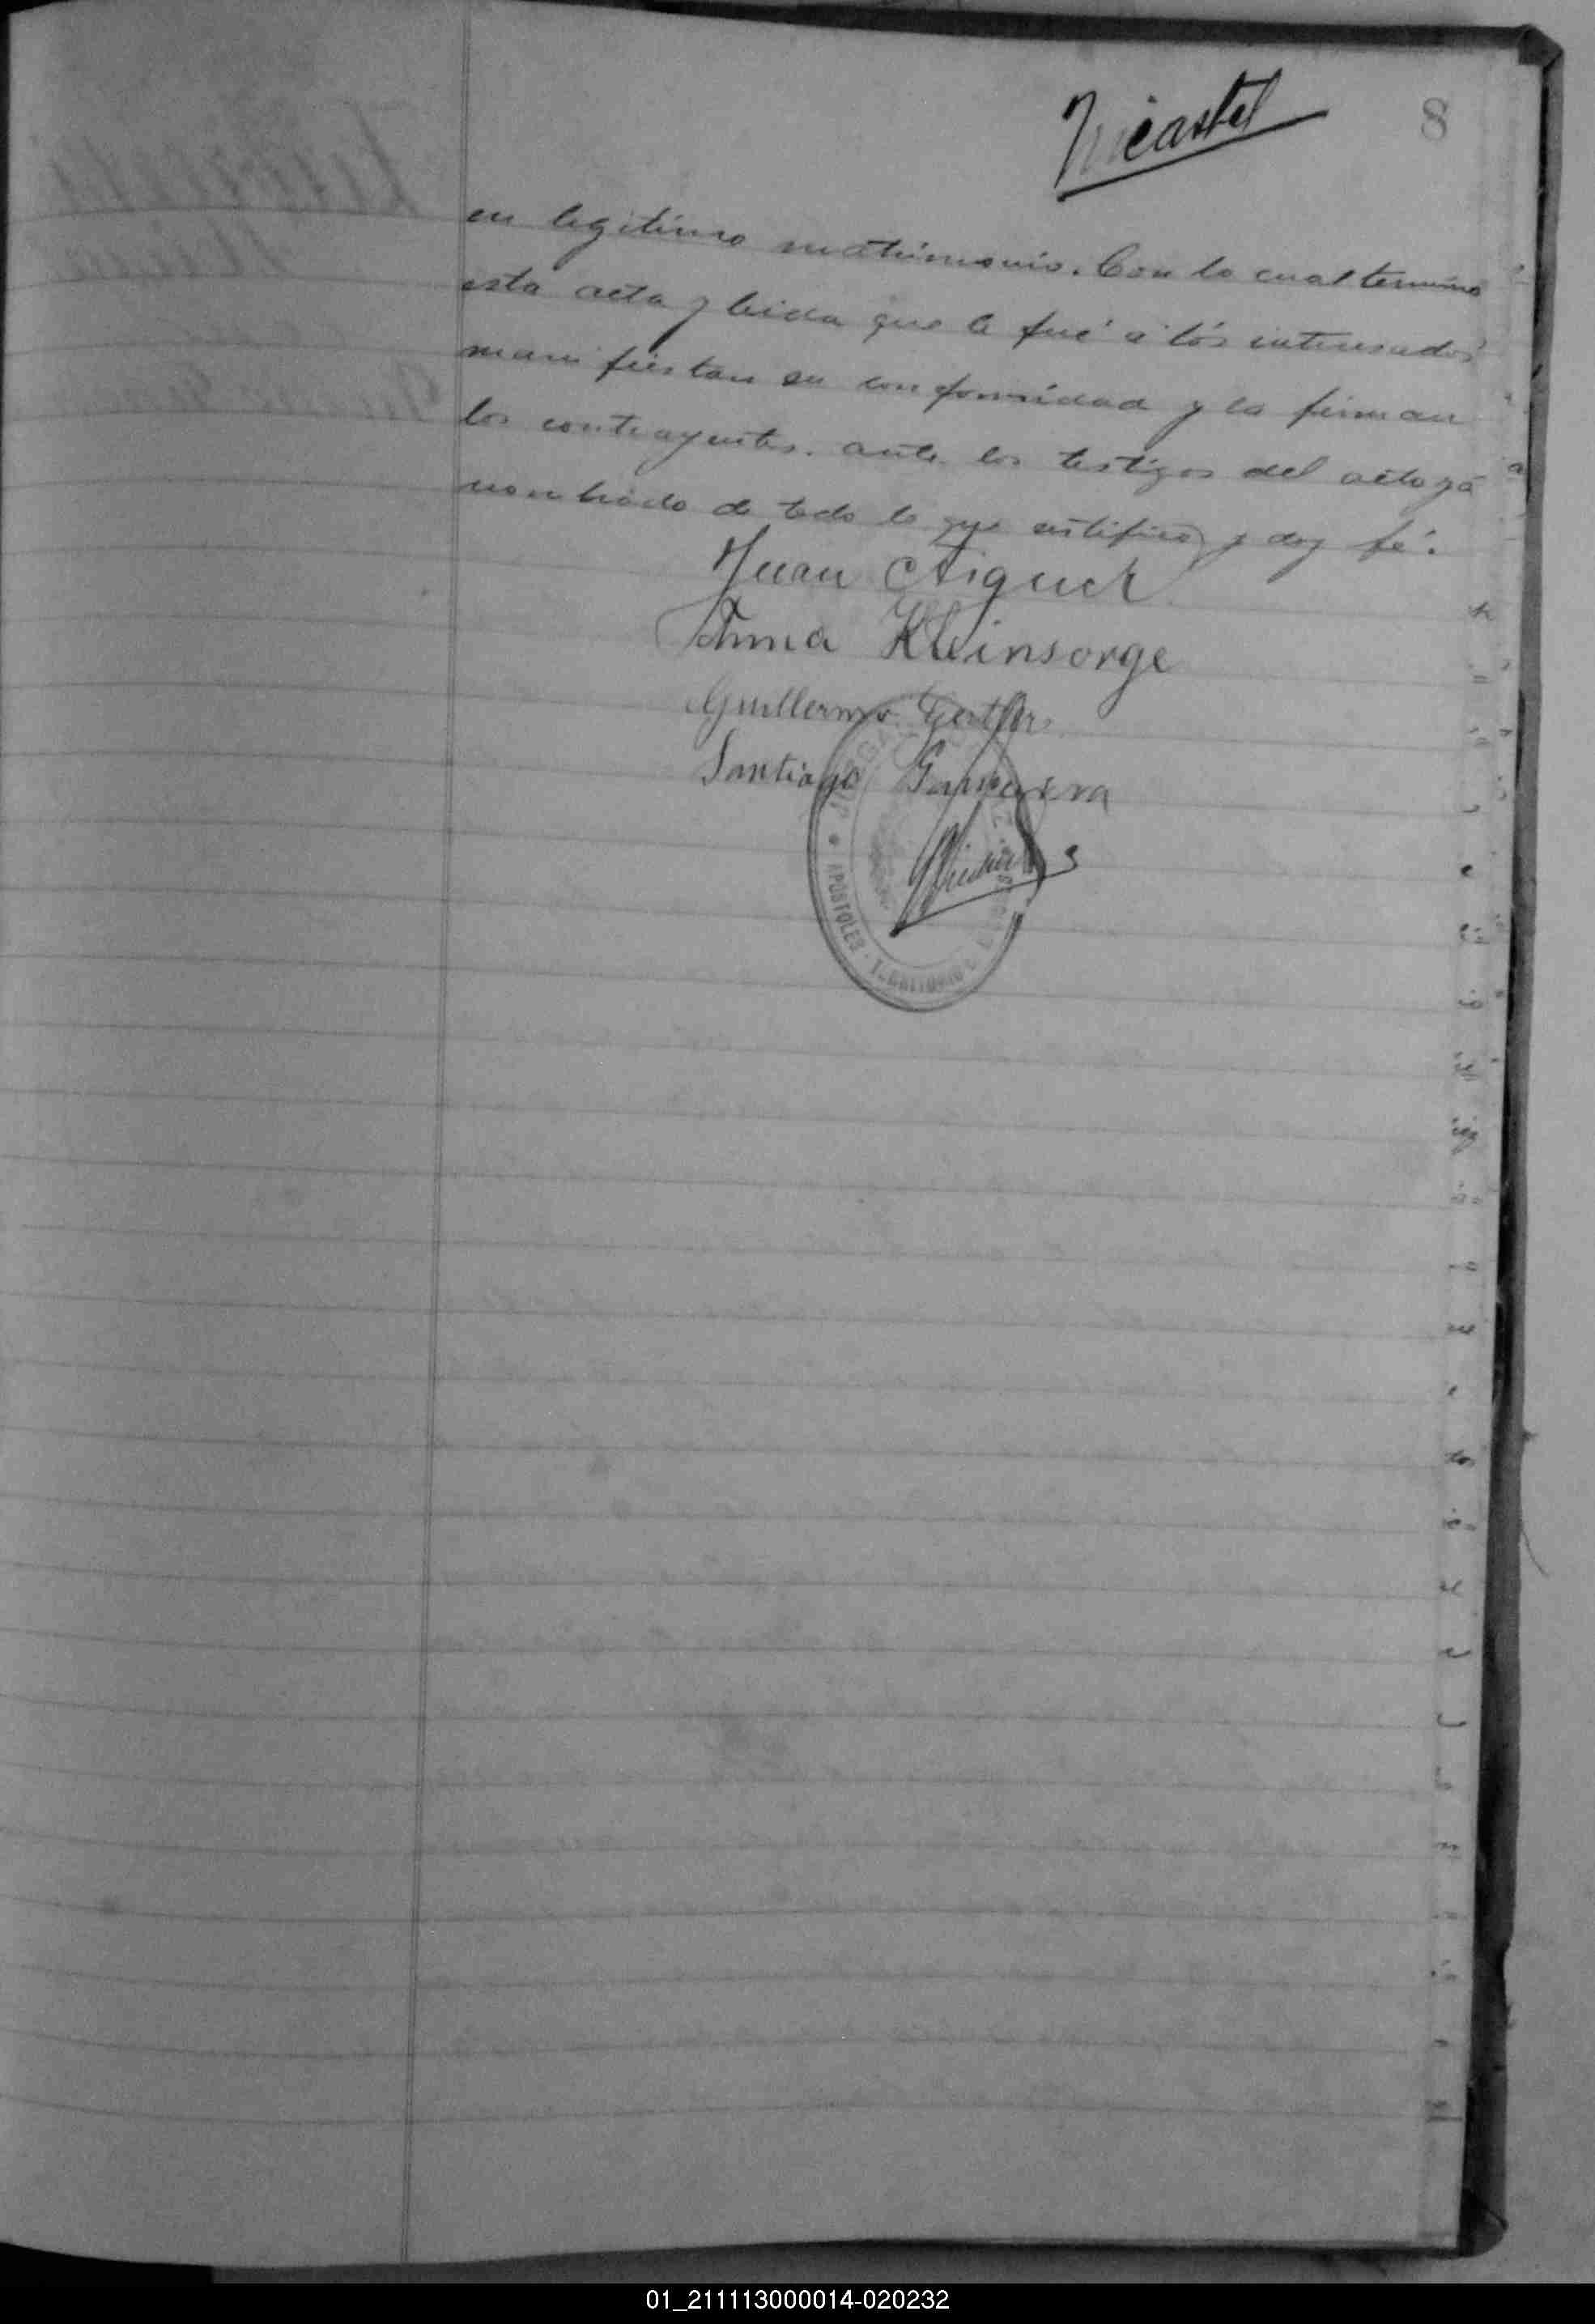 8
en legitimo matrimonio. Con lo cual termino
esta acta y leida que le fué a los interesados
manifiestan su conformidad y la firman
los contrayentes. ante los testigos del acto ya
nombrado de todo lo que certifico y doy fé.
Juan
Anna Kleinsorge
Guillermo
Santiago
APOSTOLES
01_211113000014-020232